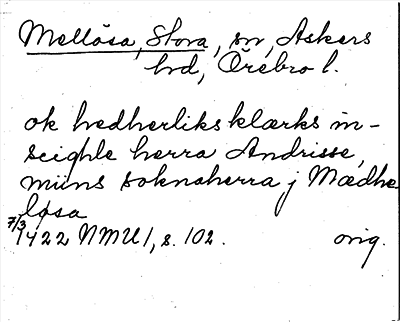 Mellösa, Stora, sn, Askers
hd, Örebro l.
ok hedherliks klærks in-
seighle herra Andrisse,
miins soknaherra j Mædhe
løsa
7/3 1422 NMU 1, s. 102. orig.